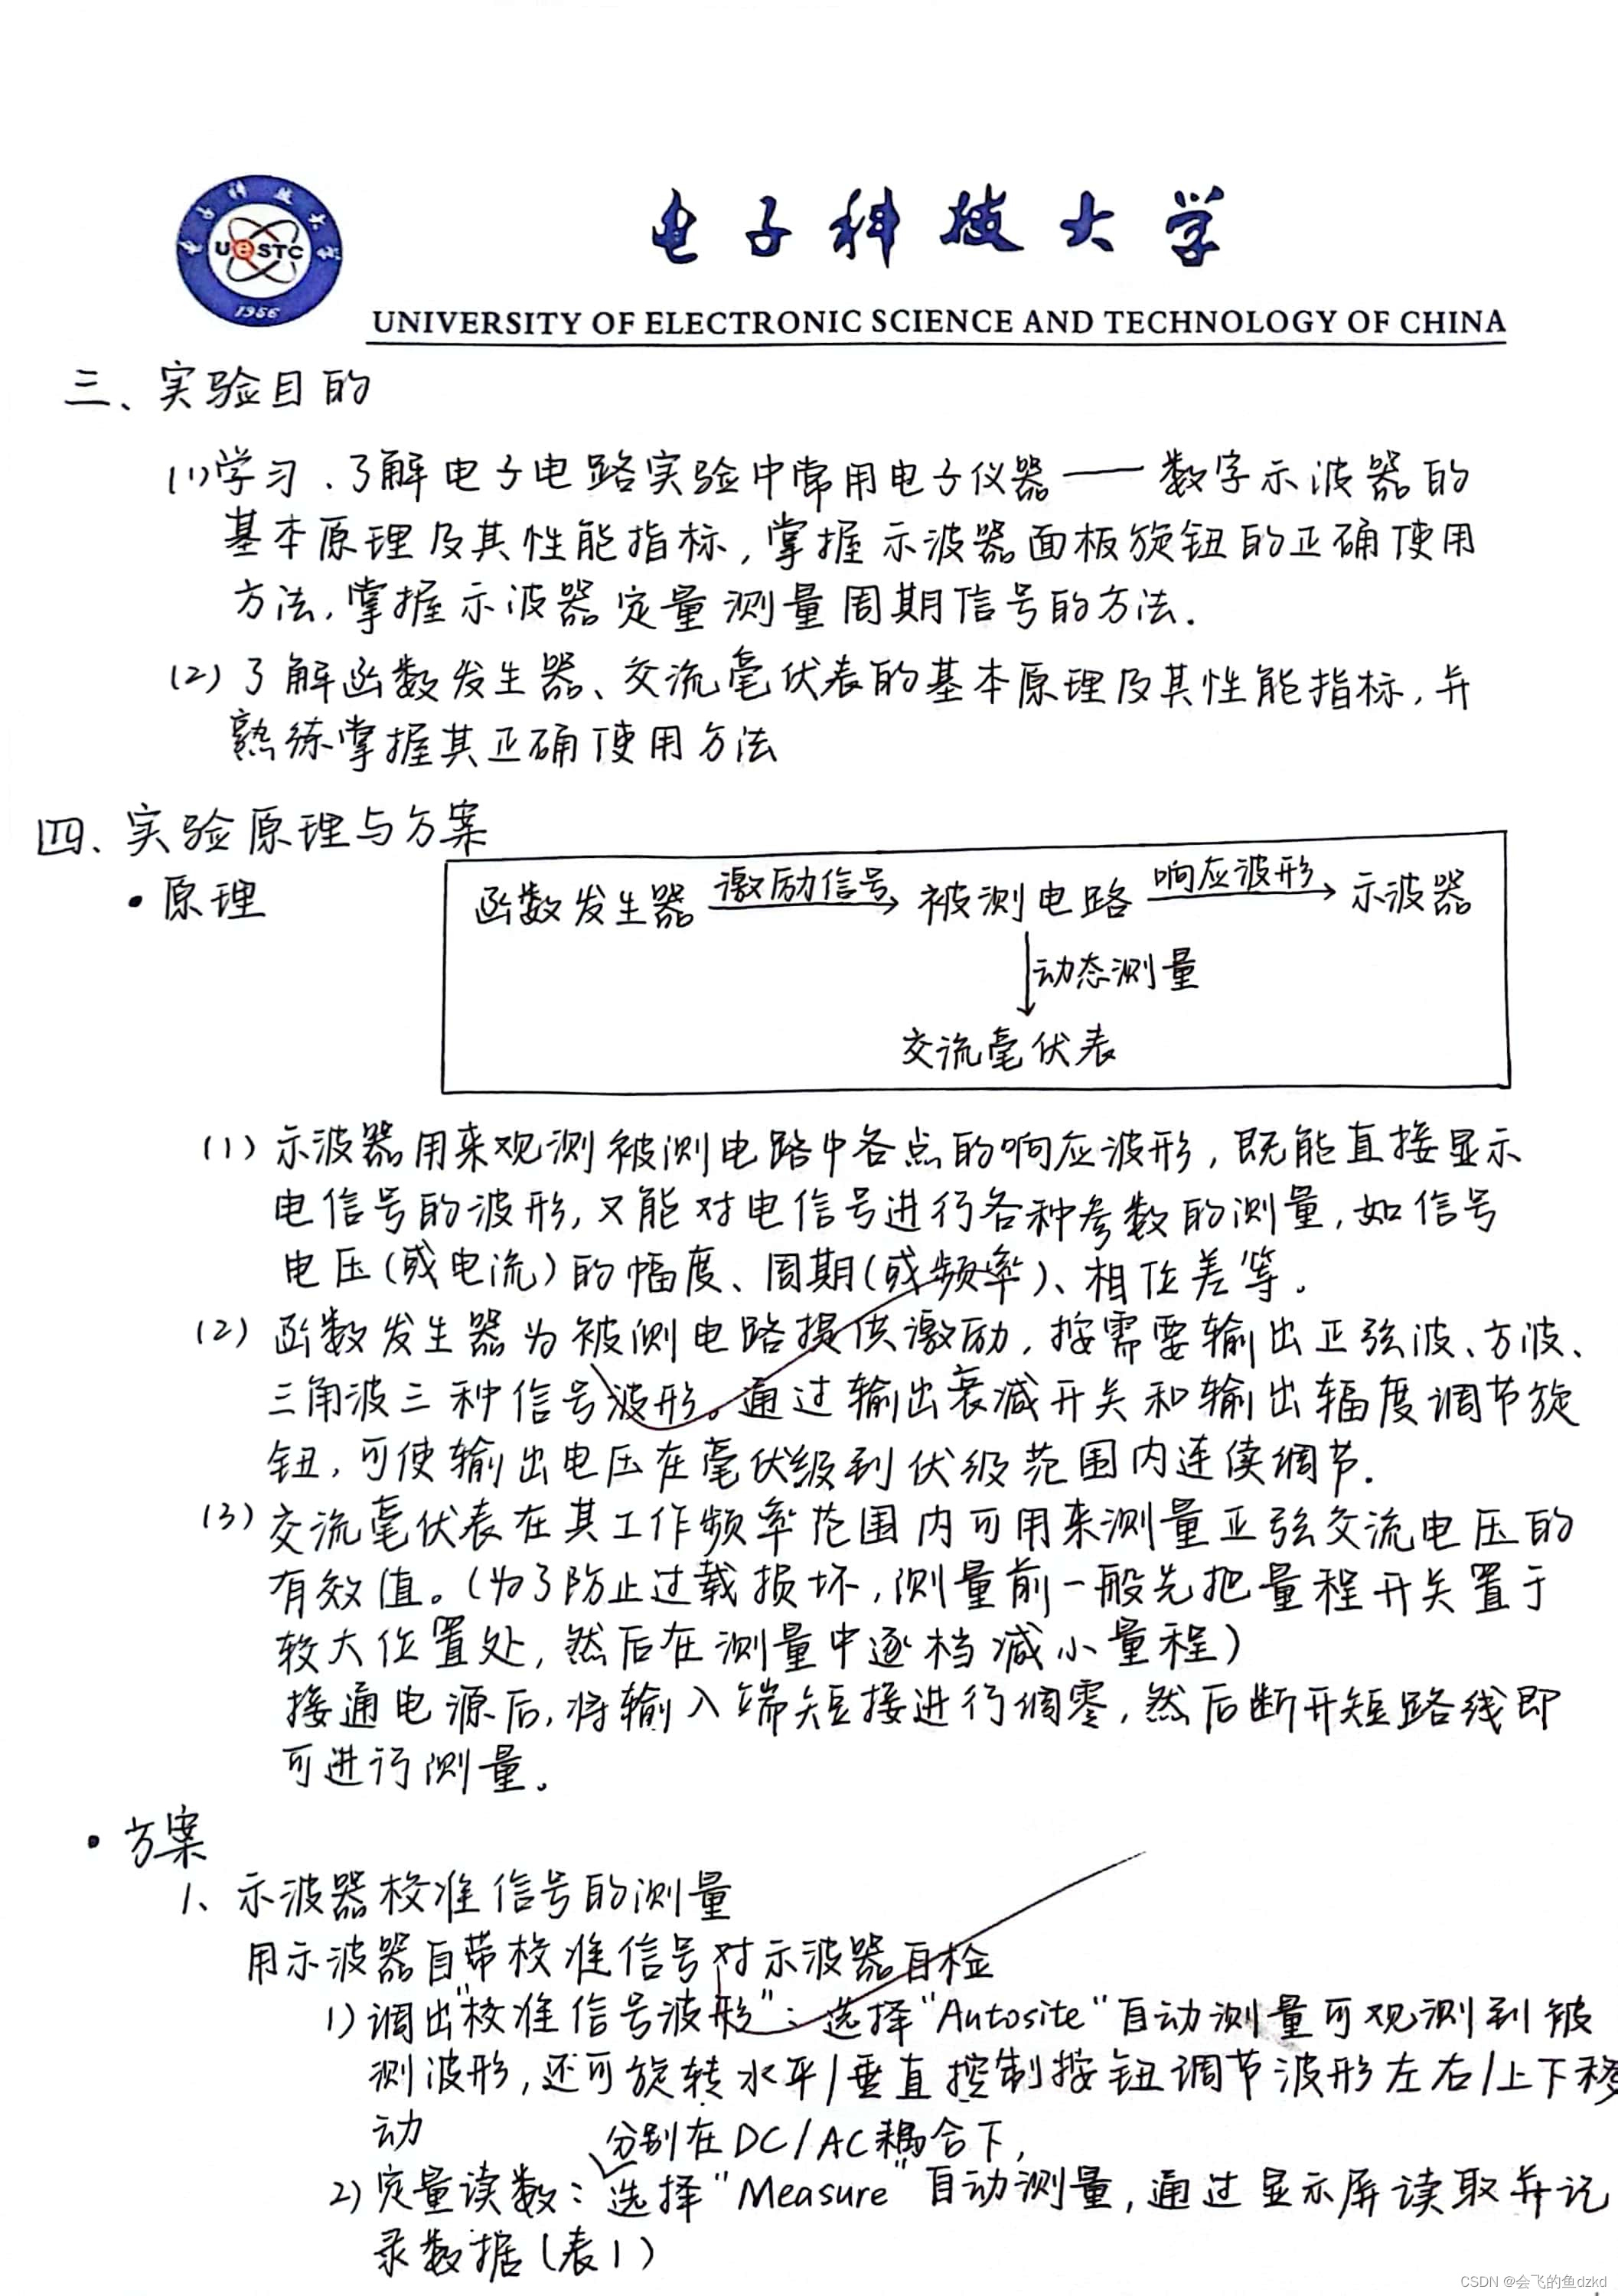 电子科技大学
UESTC
1956
电子科技大学
UNIVERSITY OF ELECTRONIC SCIENCE AND TECHNOLOGY OF CHINA
三、实验目的
(1)学习、了解电子电路实验中常用电子仪器——数字示波器的
基本原理及其性能指标,掌握示波器面板旋钮的正确使用
方法,掌握示波器定量测量周期信号的方法.
(2)了解函数发生器、交流毫伏表的基本原理及其性能指标,并
熟练掌握其正确使用方法
四、实验原理与方案
·原理
函数发生器 激励信号 被测电路 响应波形 示波器
动态测量
交流毫伏表
(1)示波器用来观测被测电路中各点的响应波形,既能直接显示
电信号的波形,又能对电信号进行各种参数的测量,如信号
电压(或电流)的幅度、周期(或频率)、相位差等。
(2)函数发生器为被测电路提供激励,按需要输出正弦波、方波、
三角波三种信号波形。通过输出衰减开关和输出辐度调节旋
钮,可使输出电压在毫伏级到伏级范围内连续调节.
(3)交流毫伏表在其工作频率范围内可用来测量正弦交流电压的
有效值。(为了防止过载损坏,测量前一般先把量程开关置于
较大位置处,然后在测量中逐档减小量程)
接通电源后,将输入端短接进行调零,然后断开短路线即
可进行测量。
·方案
1、示波器校准信号的测量
用示波器自带校准信号对示波器自检
1)调出"校准信号波形":选择"Autosite"自动测量可观测到被
测波形,还可旋转水平/垂直控制按钮调节波形左右/上下移
动
分别在DC/AC耦合下,
2)定量读数:选择"Measure"自动测量,通过显示屏读取并记
录数据(表1)
CSDN @会飞的鱼dzkd